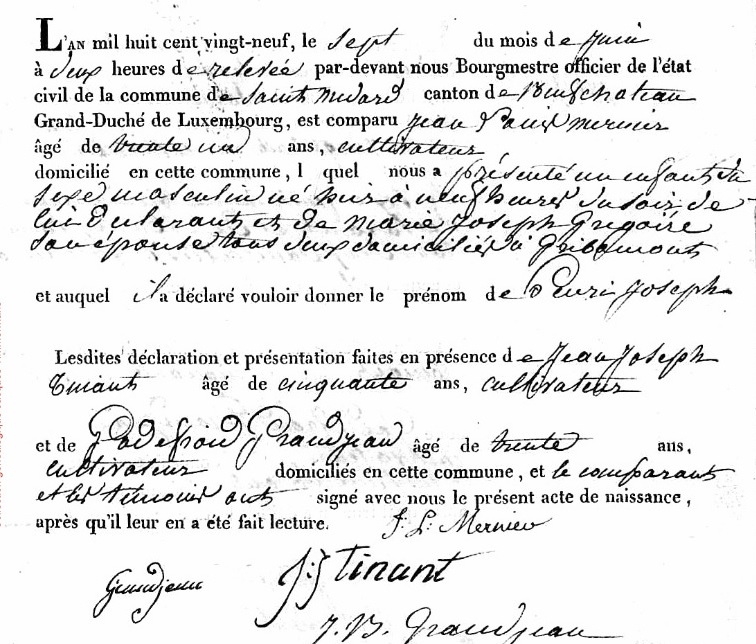 L'AN mil huit cent vingt-neuf, le sept du mois de juin
à deux heures de relevée par-devant nous Bourgmestre officier de l'état
civil de la commune de Saint medard canton de neufchateau
Grand-Duché de Luxembourg, est comparu jean Louis mernier
âgé de trente un ans, cultivateur
domicilié en cette commune, l quel nous a présenté un enfant du
sexe masculin né hier à neuf heures du soir de
lui declarant et de marie joseph Grégoire
son épouse tous deux domiciliés à Gribomont
et auquel il a déclaré vouloir donner le prénom de henri joseph
Lesdites déclaration et présentation faites en présence de jean joseph
tinant âgé de cinquante ans, cultivateur
et de Grandjean âgé de trente ans,
cultivateur domiciliés en cette commune, et le comparant
et les temoins ont signé avec nous le présent acte de naissance,
après qu'il leur en a été fait lecture. J: L: Mernier
Grandjean J: J Tinant
Grandjean